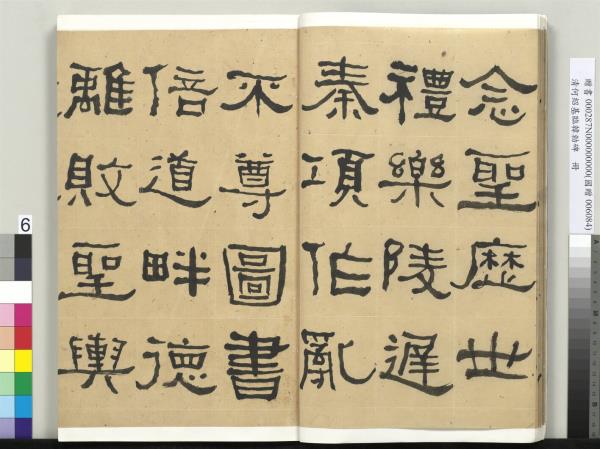 念聖歷世
禮樂陵遲
秦項作亂
不尊圖書
倍道畔德
離敗聖輿
贈書 000287N000000000(國贈 006084)
清何紹基臨韓勅碑 冊
6